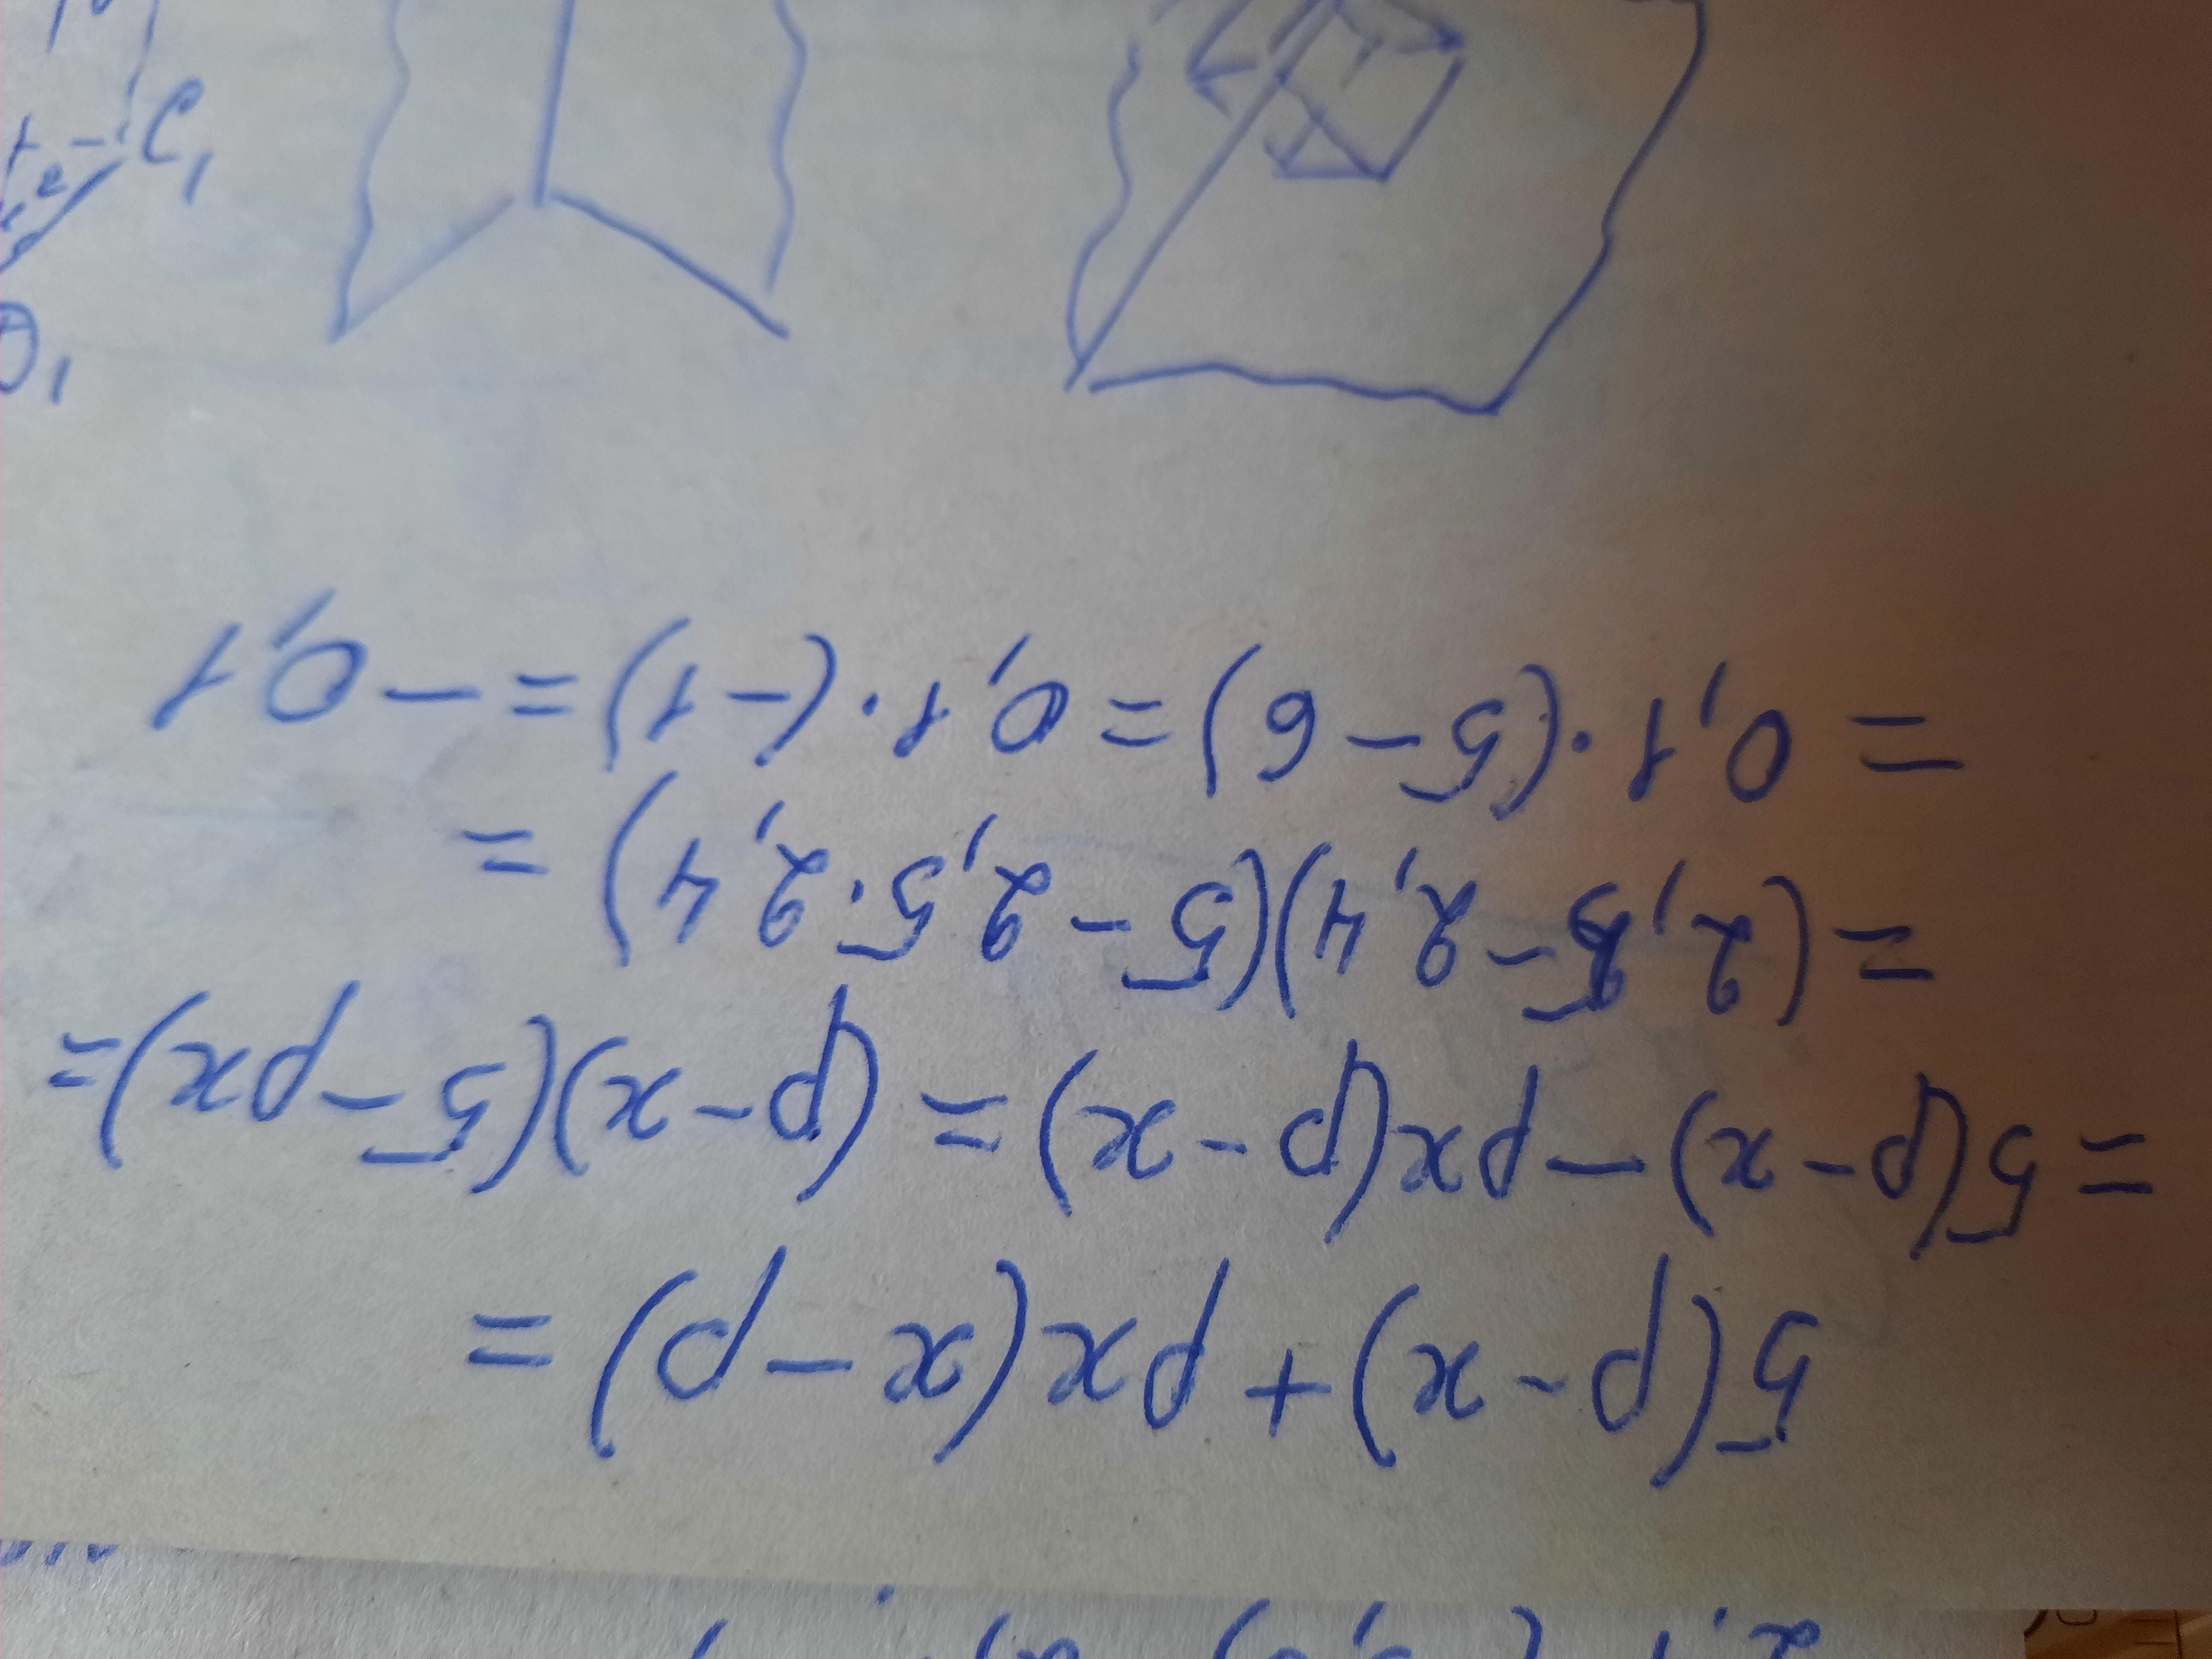 5(p-x)+px(x-p)=
=5(p-x)-px(p-x)=(p-x)(5-px)=
=(2,5-2,4)(5-2,5·2,4)=
=0,1·(5-6)=0,1·(-1)=-0,1
C₁
D₁